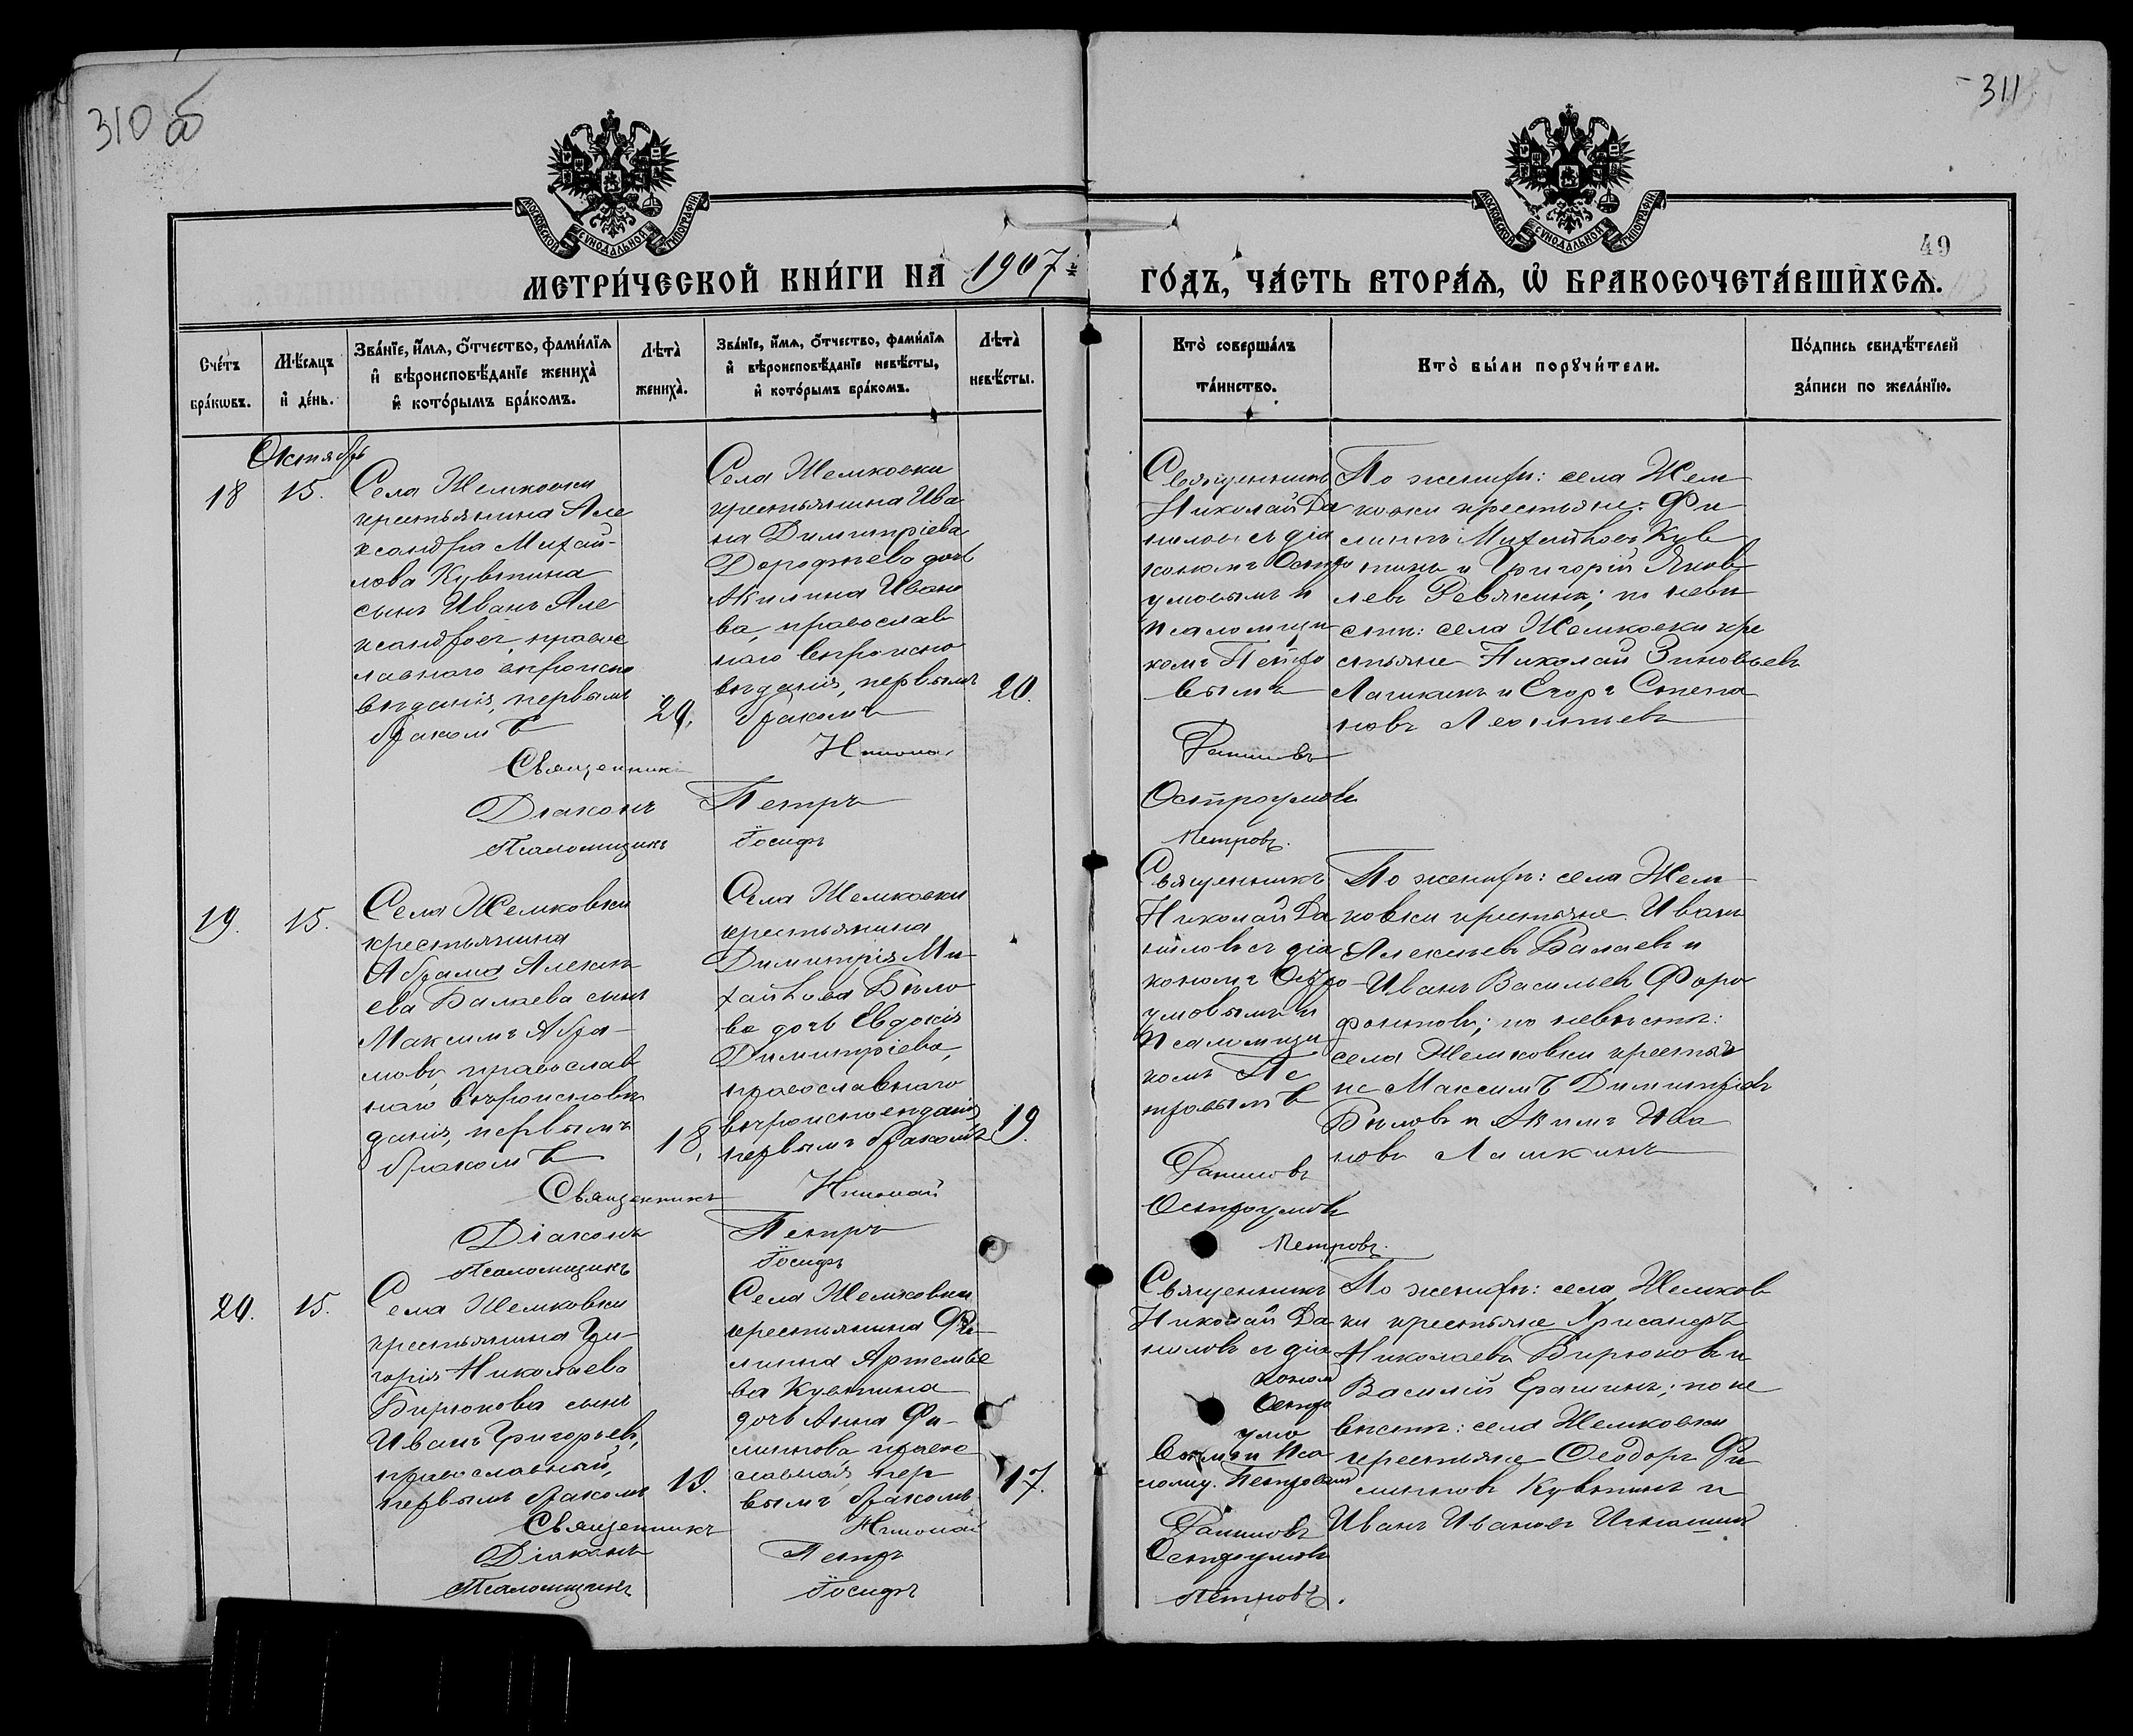 310 об
311
49
МОСКОВСКОЙ СѴНОДАЛЬНОЙ ТИПОГРАФІИ
МОСКОВСКОЙ СѴНОДАЛЬНОЙ ТИПОГРАФІИ
МЕТРИ́ЧЕСКОЙ КНИ́ГИ НА 1907 й
ГО́ДЪ, ЧА́СТЬ ВТОРА́Ѧ, Ѡ҆ БРАКОСОЧЕТА́ВШИХСѦ.
Сче́тъ бра́кѡвъ.
Мѣ́сѧцъ и҆ де́нь.
Зва́нїе, и҆́мѧ, ѻ҆́тчество, фами́лїѧ
и҆ вѣроисповѣ́данїе жениха̀
и҆ кото́рымъ бра́комъ.
Лѣта̀ жениха̀.
Зва́нїе, и҆́мѧ, ѻ҆́тчество, фами́лїѧ
и҆ вѣроисповѣ́данїе невѣ́сты,
и҆ кото́рымъ бра́комъ.
Лѣта̀ невѣ́сты.
Кто̀ соверша́лъ
та́инство.
Кто̀ бы́ли порꙋчи́тели.
По́дпись свидѣ́телей
за́писи по жела́нїю.
Октябрь
18
15.
Села Жемковки
крестьянина Але
ксандра Михай-
лова Кувтина
сынъ Иванъ Але
ксандровъ, правос
лавнаго вѣроиспо
вѣданія, первымъ
бракомъ
20.
Села Жемковки
крестьянина Ива
на Димитріева
Дорофѣева дочь
Акилина Ивано
ва, православ
наго вѣроиспо
вѣданія, первымъ
бракомъ
20.
Священникъ
Николай Да
ниловъ съ діа
кономъ Остро
умовымъ и
псаломщи
комъ Петро
вымъ
По женихѣ: села Жем
ковки крестьяне: Фи
липпъ Михайловъ Кув
тинъ и Григорій Яков
левъ Ревякинъ; по невѣ
стѣ: села Жемковки кре
стьяне Николай Зиновьевъ
Лашкинъ и Егоръ Степа
новъ Леонтьевъ
Священникъ Николай Даниловъ
Діаконъ Петръ Остроумовъ
Псаломщикъ Іосифъ Петровъ.
19.
15.
Села Жемковки
крестьянина
Абрама Алексѣ
ева Балаева сынъ
Максимъ Абра-
мовъ, православ
наго вѣроисповѣ
данія, первымъ
бракомъ
18.
Села Жемковки
крестьянина
Димитрія Ми-
хайлова Бѣло
ва дочь Евдокія
Димитріева,
православнаго
вѣроисповѣданія
первымъ бракомъ
19.
Священникъ
Николай Да
ниловъ съ діа
кономъ Остро
умовымъ и
псаломщи
комъ Пе
тровымъ
По женихѣ: села Жем
ковки крестьяне Иванъ
Алексѣевъ Балаевъ и
Иванъ Васильевъ Фаро
фонтовъ; по невѣстѣ:
села Жемковки крестья
не Максимъ Димитріевъ
Бѣловъ и Акимъ Ива
новъ Лашкинъ
Священникъ Николай Даниловъ
Діаконъ Петръ Остроумовъ
Псаломщикъ Іосифъ Петровъ.
20.
15.
Села Жемковки
крестьянина Гри-
горія Николаева
Бирюкова сынъ
Иванъ Григорьевъ,
православный,
первымъ бракомъ
19.
Села Жемковки
крестьянина Фи-
липпа Артемье
ва Кувтина
дочь Анна Фи-
липпова, правос
славная, пер
вымъ бракомъ
17.
Священникъ
Николай Да
ниловъ съ діа
коном
Остро
умо
вымъ и пса
ломщ. Петровымъ
По женихѣ: села Жемков
ки крестьяне Хрисанфъ
Николаевъ Бирюковъ и
Василій Ерашинъ; по не
вѣстѣ: села Жемковки
крестьяне Ѳеодоръ Фи
липповъ Кувтинъ и
Иванъ Ивановъ
Священникъ Николай Даниловъ
Діаконъ Петръ Остроумовъ
Псаломщикъ Іосифъ Петровъ.